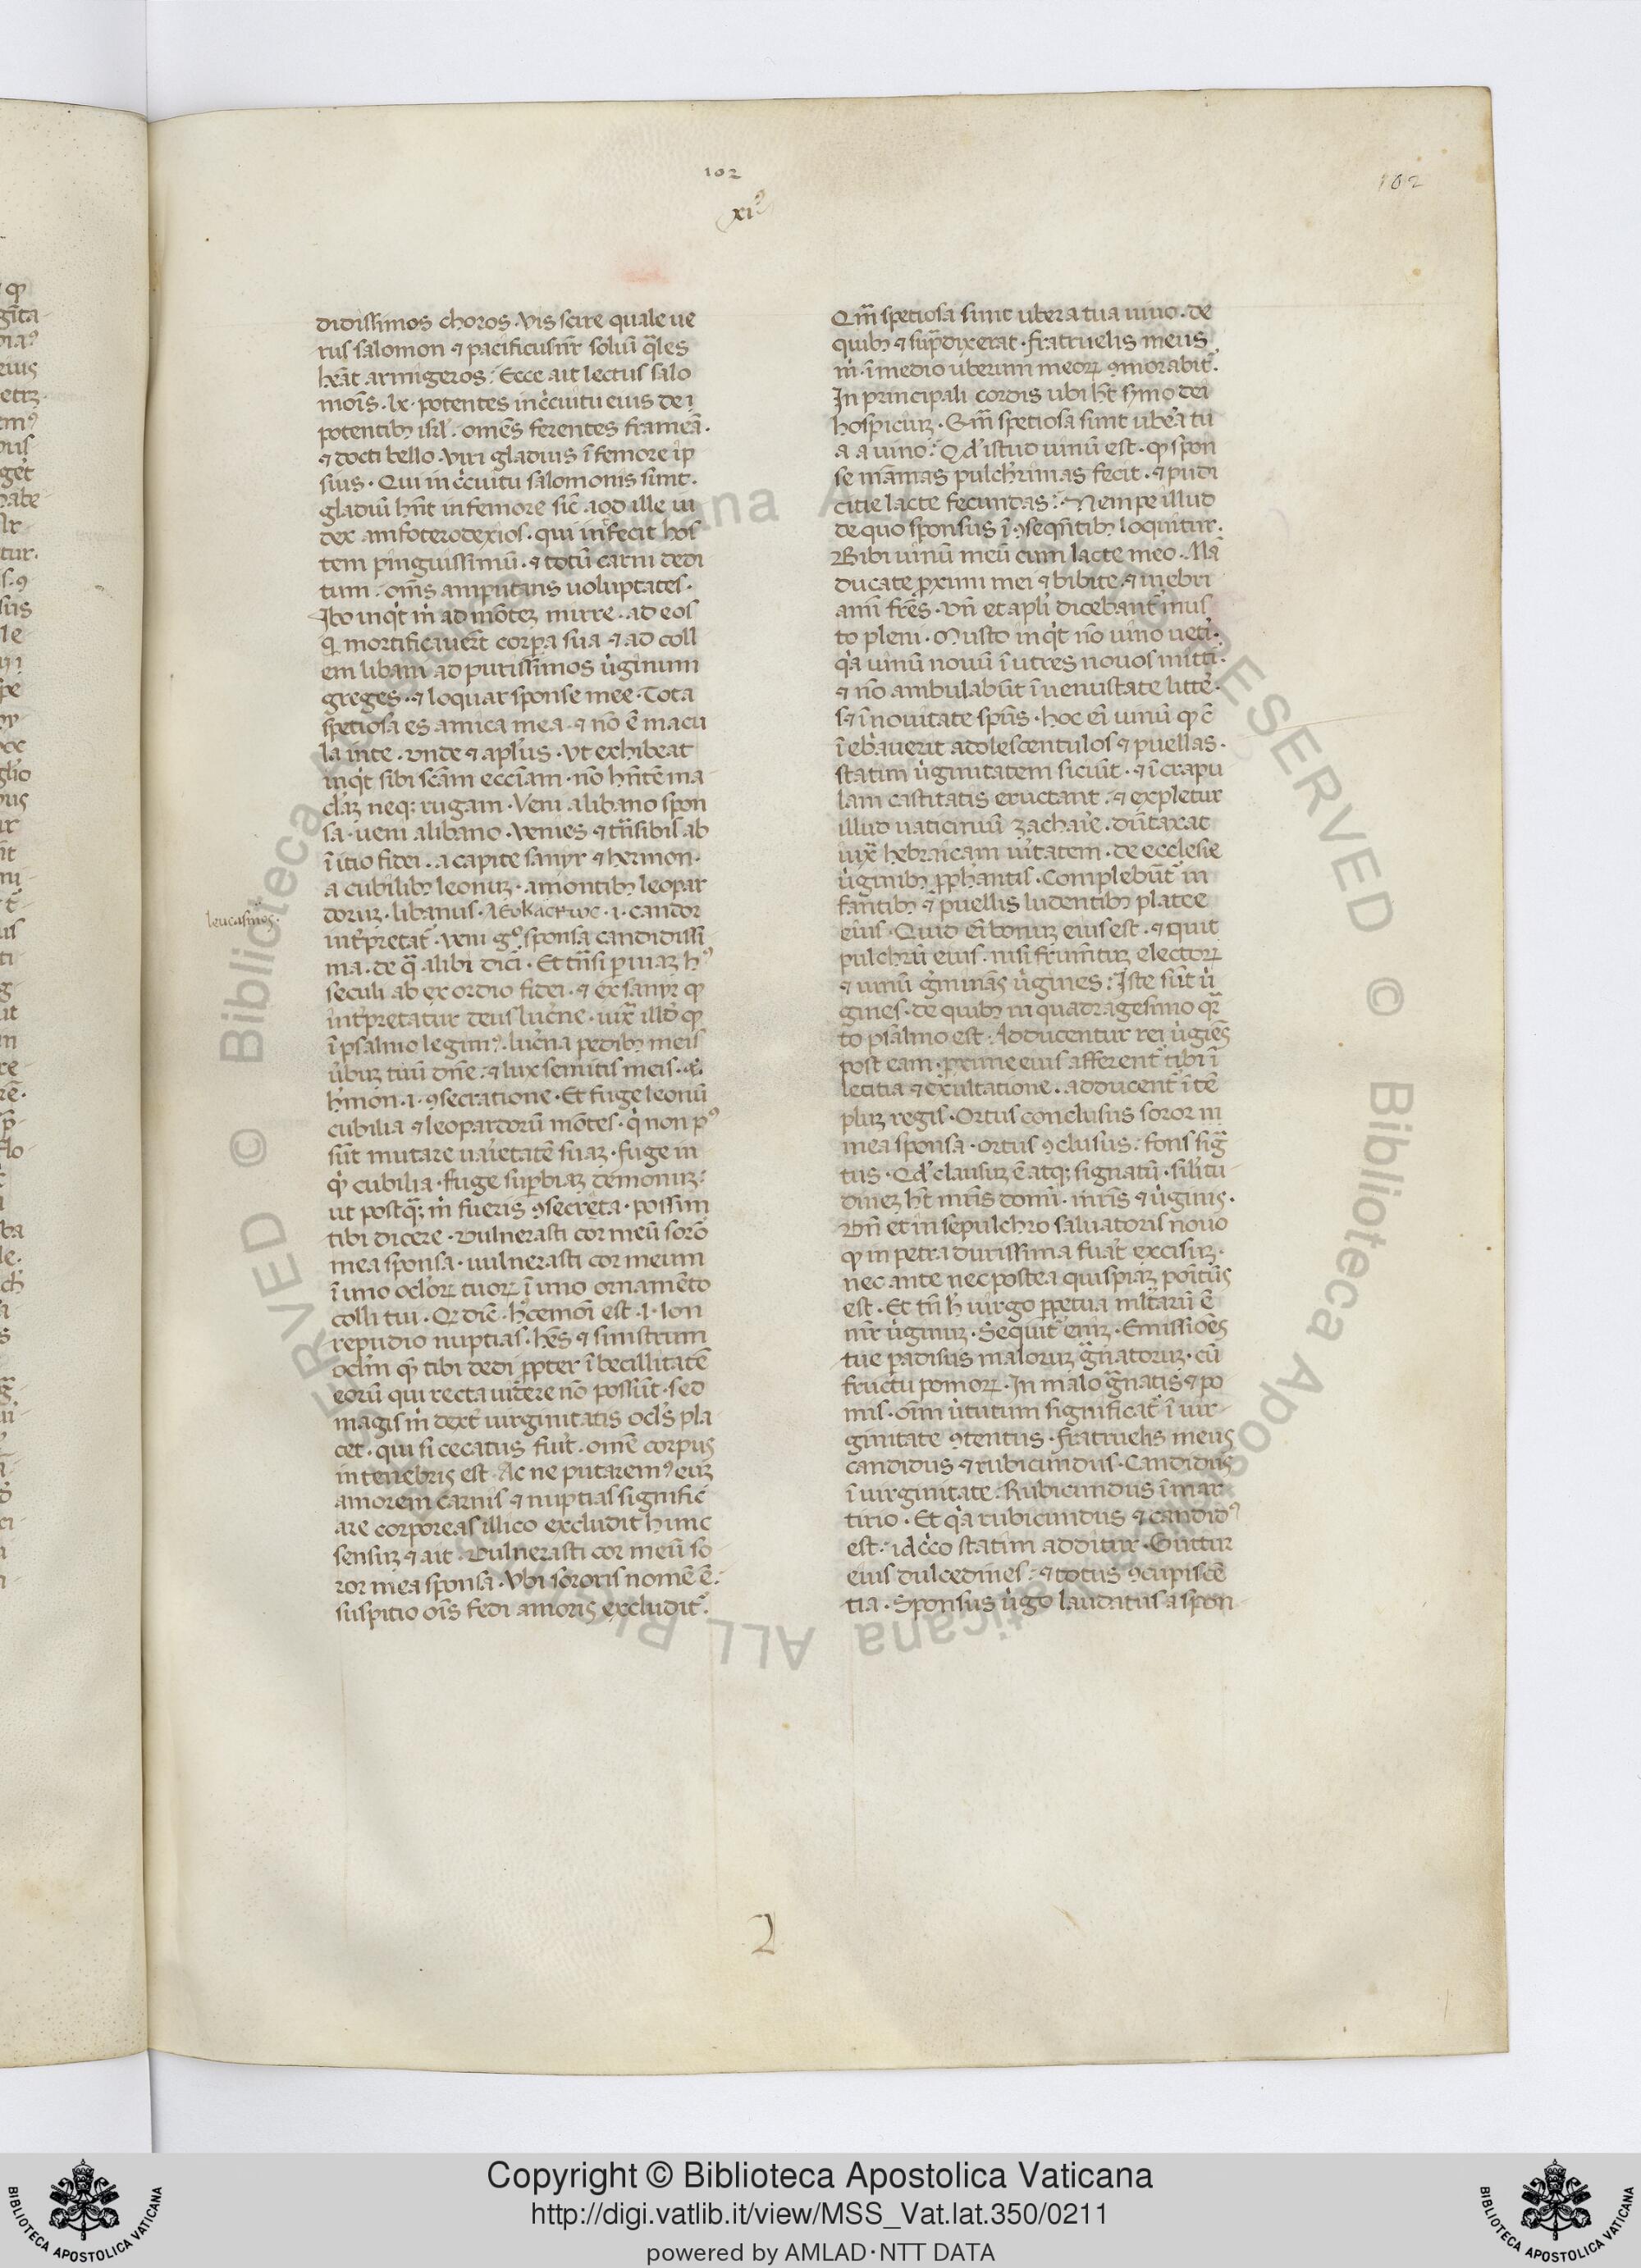 102
102
xi
didissimos choros. Vis scire quale ue
rus salomon ⁊ pacificus nr̄ soliū q̄les
heāt armigeros: Ecce ait lectus salo
mōis. lx. potentes in c̓cuitu eius de
potentibꝫ isrl̓. omēs ferentes frameā.
⁊ docti bello. viri gladius ī femore ip
sius. Qui in c̓cuitu salomonis sunt.
gladiū hn̄t in femore sic̄ aod ille iu
dex amfoterodexios. qui infecit hos
tem pinguissimū. ⁊ totū carni dedi
tum. om̄s amputans uoluptates.
Ibo inqͥt m̓ ad mōteꝫ mirre. ad eos
q̓ mortificauer̄t corpa sua ⁊ ad coll
em libani ad purissimos u̓ginum
greges. ⁊ loquar sponse mee. Tota
spetiosa es amica mea ⁊ nō ē macu
la in te. vnde ⁊ apl̓us. Vt exhibeat
inqͥt sibi scām eccl̄iam. nō hn̄tē ma
cl̓aꝫ neqꝫ rugam. Veni a libano spon
sa. ueni a libano. Venies ⁊ trā̄sibis ab
īitio fidei. a capite sanyr ⁊ hermon.
a cubilibꝫ leonuꝫ. a montibꝫ leopar
leucasmos.
doruꝫ. libanus. ΛΕΥΚΑСΜΟС. i. candor
int̓pretat᷑. veni gͦ sponsa candidissi
ma. de q̄ alibi dicī. Et trā̄si p uiaꝫ hꝰ
seculi ab exordio fidei. ⁊ ex sanyr qͩ
int̓pretatur deus luc̓ne. iux̄ illd̓ qͩ
ī psalmo legimꝰ. luc̓na pedibꝫ meis
u̓buꝫ tuū dn̄e. ⁊ lux semitis meis. ⁊
h̓mon. i. ꝯsecratione. Et fuge leonū
cubilia ⁊ leopardorū mōtes. qͥ non pꝰ
sūt mutare uarietatē suaꝫ. fuge in
qͥt cubilia. fuge supbiaꝫ demonuꝫ.
ut postq̄ m̓ fueris ꝯsecreta. possim
tibi dicere. Vulnerasti cor meū soror̄
mea sponsa. uulnerasti cor meum
ī uno ocl̓oꝝ tuoꝝ ī uno ornamēto
colli tui. Qd̓ dic̄. hͨcemōi est. i. Non
repudio nuptias. hēs ⁊ sinistrum
ocl̓m qͩ tibi dedi ꝓpter ībecillitatē
eorū qui recta uidere nō possūt. sed
magis m̓ dext̓ uirginitatis ocl̓s pla
cet. qui si cecatus fuīt. omē corpus
in tenebris est. Ac ne putaremꝰ euꝫ
amorem carnis ⁊ nuptias signific
are corporeas illico excludit hunc
sensuꝫ ⁊ ait. Vulnerasti cor meū so
ror mea sponsa. Vbi sororis nomē ē.
suspitio oīs fedi amoris excludit᷑.
Qm̄ spetiosa sunt ubera tua uino. de
quibꝫ ⁊ sup̄ dixerat. fratruelis meus
m̓. ī medio uberum meoꝝ ꝯmorabit᷑.
In principali cordis ubi ht̄ sermo dei
hospiciuꝫ. Qm̄ spetiosa sunt ubera tu
a a uino. Qd̓ istud uinū est. qͩ spon
se māmas pulcherrimas fecit. ⁊ pudi
citie lacte fecundas: Nempe illud
de quo sponsus ī ꝯseqn̄tibꝫ loquitur.
Bibi uinū meū cum lacte meo. Mā
ducate ꝓximi mei ⁊ bibite ⁊ inebri
amī fr̄es. vn̄ et apl̓i dicebant᷑ mus
to pleni. Musto inqͥt nō uino uet̓i.
qͥa uinū nouū ī utres nouos mitt̓i.
⁊ nō ambulabāt ī uenustate litt̓e.
s̓ ī nouitate spūs. hoc eī uinū qͩ c̄
īebriauerit adolescentulos ⁊ puellas.
statim u̓ginitatem siciūt. ⁊ ī crapu
lam castitatis eructant. ⁊ expletur
illud uaticiniū zacharie. dūtaxat
iux̄ hebraicam u̓itatem. de ecclesie
u̓ginibꝫ ꝓphantis. Complebūt᷑ in
fantibꝫ ⁊ puellis ludentibꝫ platee
eius. Quid eī bonuꝫ eius est. ⁊ quit
pulchrū eius. nisi frumētuꝫ electoꝝ
⁊ uinū g̓minās u̓gines: Iste sūt u̓
gines. de quibꝫ in quadragesimo qr̄
to psalmo est. Adducentur rei u̓gīes
post eam. pxime eius afferent᷑ tibi ī
letitia ⁊ exultatione. adducent᷑ ī tē
pluꝫ regis. Ortus conclusus soror m
mea sponsa. ortus ꝯclusus: fons siḡ
tus. Qd̓ clausuꝫ ē atqꝫ signatū. silitu
dineꝫ ht̄ mr̄is domī. mr̄is ⁊ u̓ginis.
Vn̄ et in sepulchro saluatoris nouo
qͩ in petra durissima fuāt excisuꝫ.
nec ante nec postea quispiaꝫ poītus
est. Et tn̄ h̓ uirgo ppetua mltarū ē
mr̄ u̓ginuꝫ. Sequit᷑ eniꝫ. Emissiōes
tue padisus maloruꝫ g̅natoruꝫ. cū
fructu pomoꝝ. In malo g̅natis ⁊ po
mis. oīm u̓tutum significat᷑ ī uir
ginitate ꝯtentus. fratruelis meus
candidus ⁊ rubicundus. Candidus
ī uirginitate. Rubicundus ī mar
tirio. Et qͥa rubicundus ⁊ candidꝰ
est. idc̓co statim additur. Guttur
eius dulcedines: ⁊ totus ꝯcupiscē
tia. Sponsus u̓go laudatus a spon
2
Copyright © Biblioteca Apostolica Vaticana
http://digi.vatlib.it/view/MSS_Vat.lat.350/0211
powered by AMLAD·NTT DATA
BIBLIOTECA APOSTOLICA VATICANA
BIBLIOTECA APOSTOLICA VATICANA